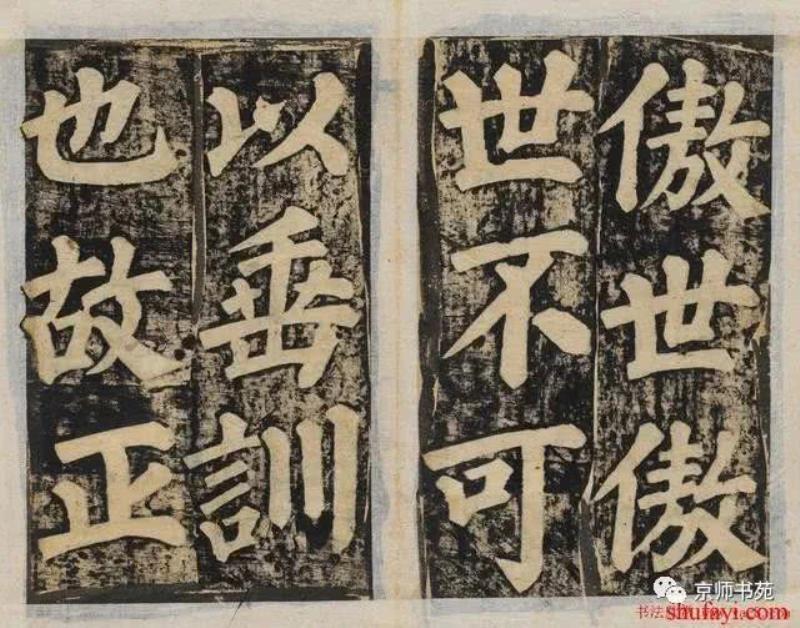 傲世傲
世不可
以垂訓
也故正
京师书苑
shufayi.com